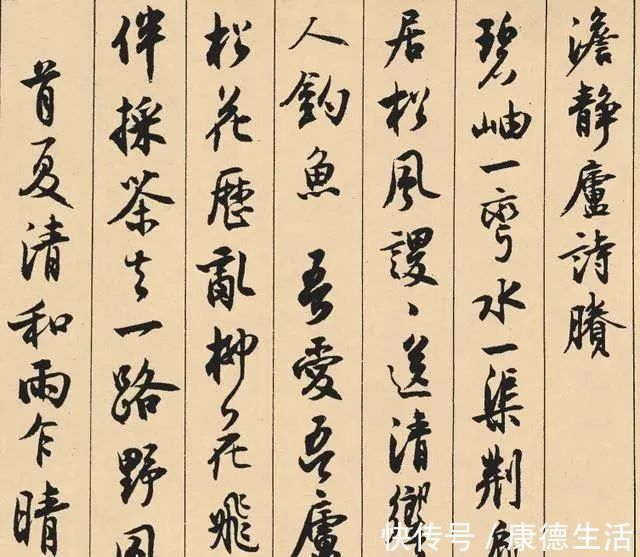 澹靜廬詩賸
碧岫一彎水一渠荆
居松風謖、送清響
人釣魚 吾愛吾廬
松花歷亂柳花飛
伴採茶去一路野
首夏清和雨乍晴
快传号 / 康德生活